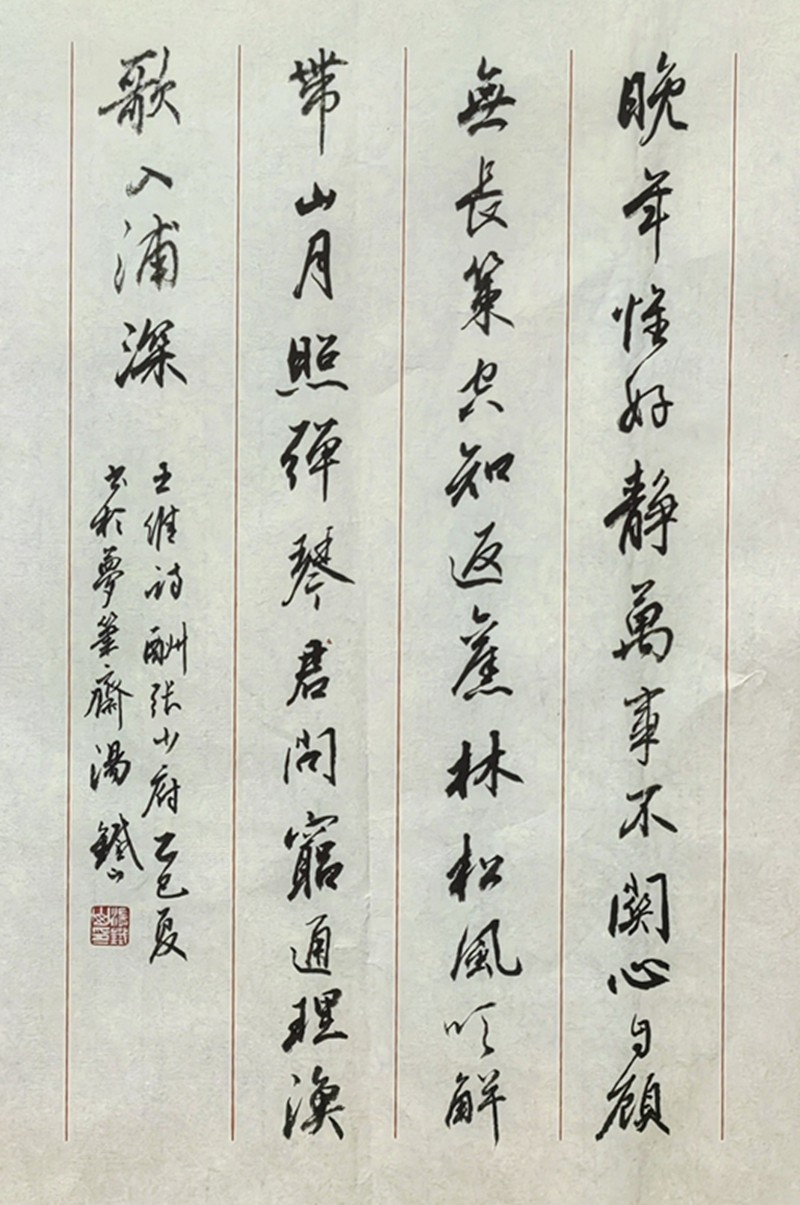 晚年惟好靜萬事不關心自顧
無長策空知返舊林松風吹解
帶山月照彈琴君問窮通理漁
歌入浦深
王維詩酬張少府乙巳夏
書於夢筆齋湯鐵山